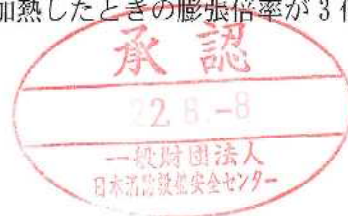 加熱したときの膨張倍率が3
承認
22.6.-8
一般財団法人
日本消防設備安全センター